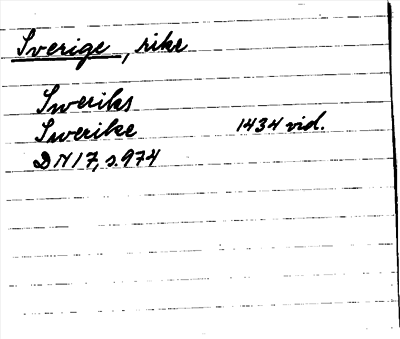 Sverige, rike
Sweriks
Swerike 1434 vid.
DN 17, s. 974